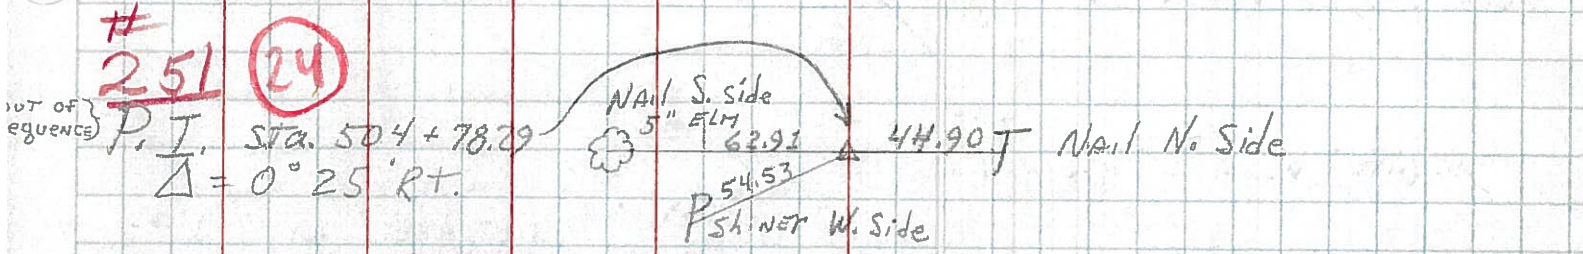 #
251 24
OUT OF
SEQUENCE} P.I. STa. 504+78.29
Δ = 0°25' RT.
NAil S. Side
5" ELM
62.91
44.90 T NAil N. Side
54.53
P Shiner W. Side